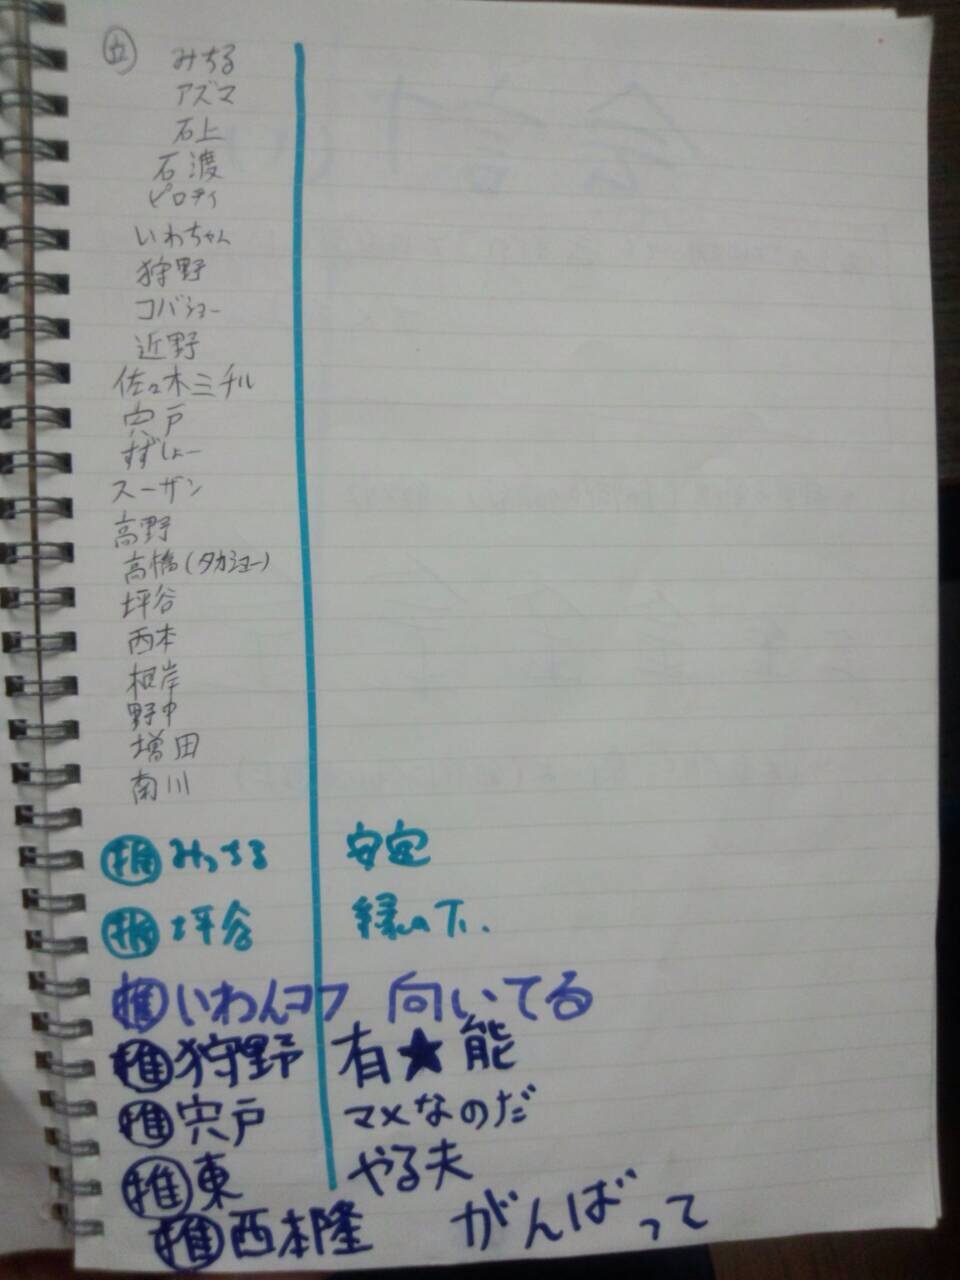 立 みちる
アズマ
石上
石渡
ピロティ
いわちゃん
狩野
コバショー
近野
佐々木ミチル
宍戸
すずしょー
スーザン
高野
高橋(タカショー)
坪谷
西本
根岸
野中
増田
南川
推 みっちる 安定
推 坪谷 縁の下.
推 いわんコフ 向いてる
推 狩野 有★能
推 宍戸 マメなのだ
推 東 やる夫
推 西本隆 がんばって